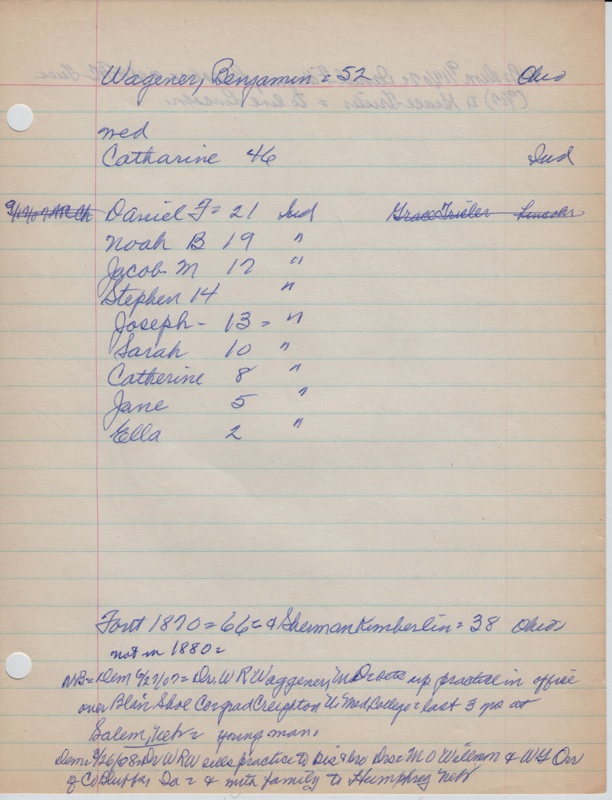 Wagener, Benjamin = 52 Ohio
med
Catharine 46 Ind
Daniel F = 21 Ind Grace Trisler Lincoln
Noah B 19 "
Jacob M 17 "
Stephen 14 "
Joseph - 13 = "
Sarah 10 "
Catherine 8 "
Jane 5 "
Ella 2 "
Font 1870 = 66 = & Sherman Kimberlin = 38 Ohio
not in 1880 =
NB = Dem 6/27/07 = Dr. W R Waggener, up practice in office
over Blair Shoe Co grad Creighton U. Med College = last 3 at
Salem, Neb = young man.
Dem = 3/26/08 = Dr W R W sells practice to Drs = M O Willson & W G Orr
of Co Bluffs, Ia = & with family to Humphrey Neb